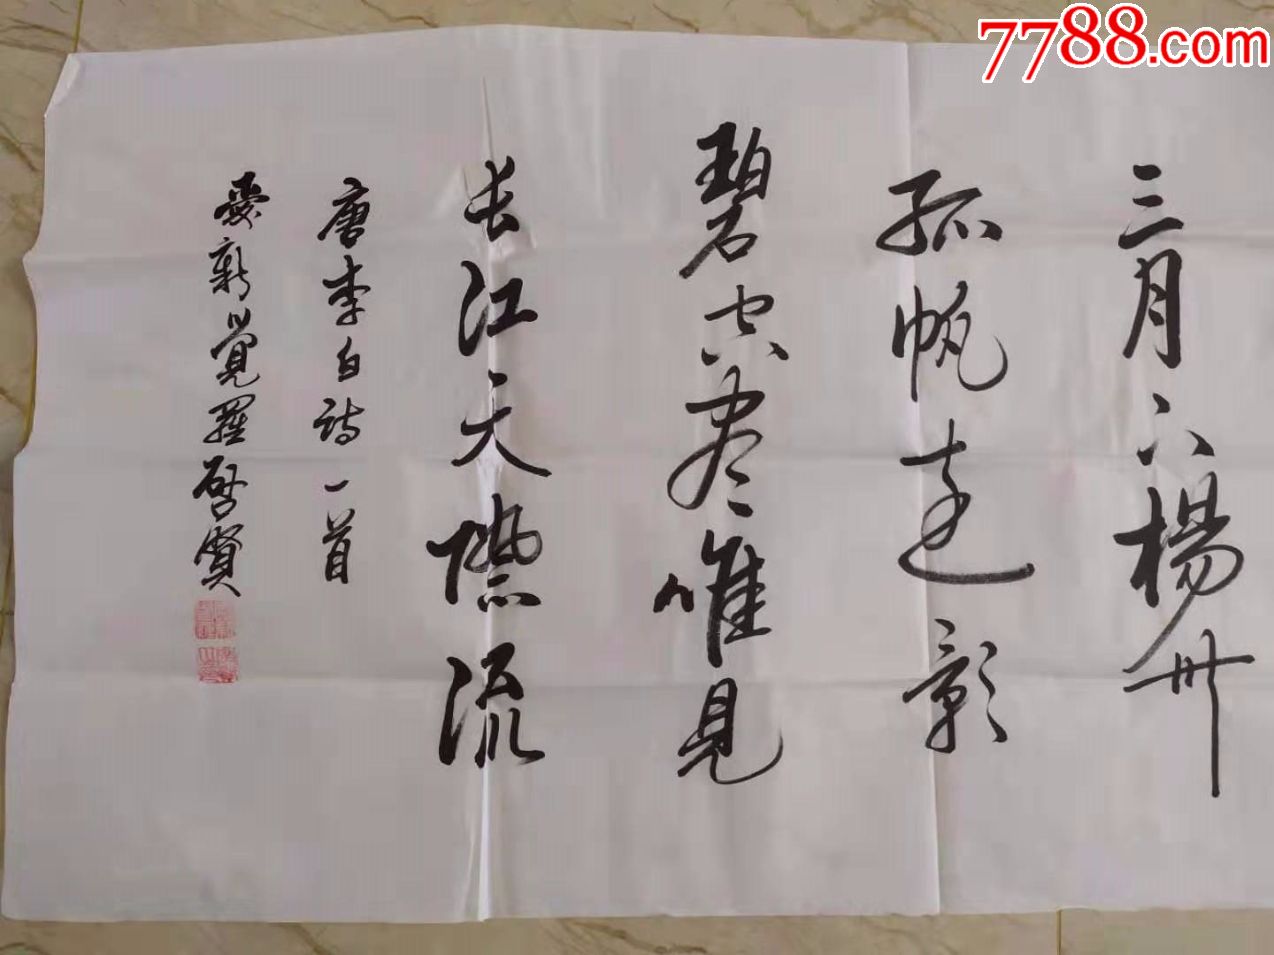 7788.com
三月下楊州
孤帆远影
碧空尽唯見
長江天際流
唐李白詩一首
愛新覺羅啓賢